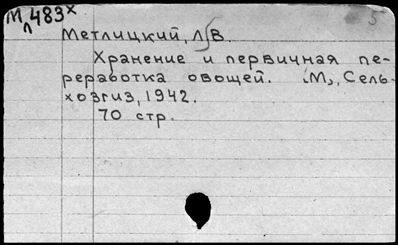 М 483х
Л
Метлицкий, Л В.
Хранение и первичная пе-
реработка овощей. (М), Сель-
хозгиз, 1942.
70 стр.